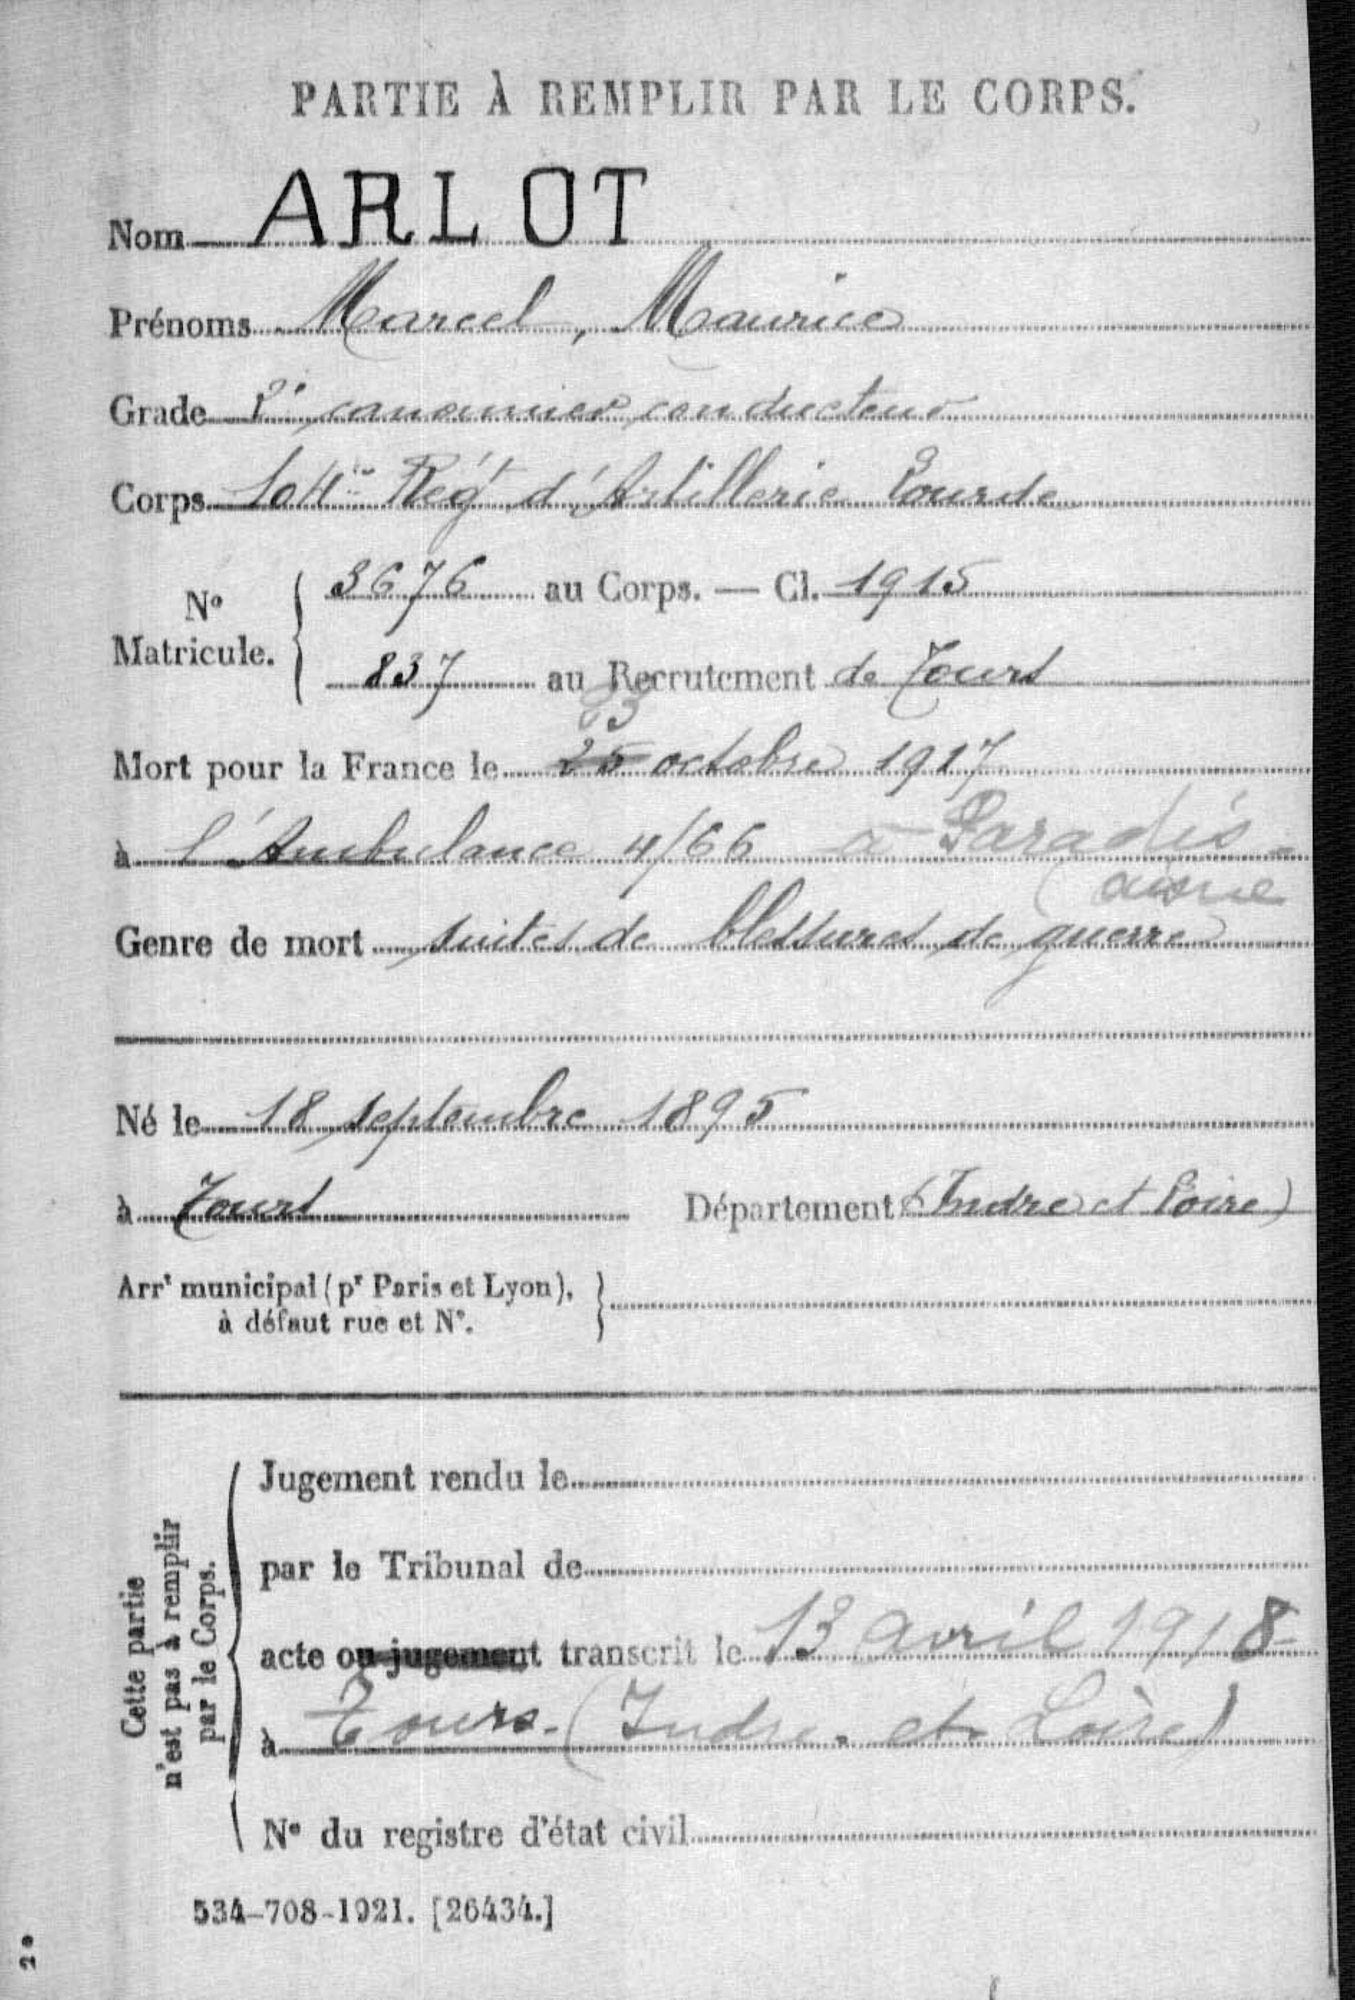 PARTIE À REMPLIR PAR LE CORPS.
Nom ARLOT
Prénoms Marcel, Maurice
Grade 2e canonnier conducteur
Corps 104me Régt d'Artillerie Lourde
No
Matricule.
3676 au Corps. — Cl. 1915
837 au Recrutement de Tours
23
Mort pour la France le 25 octobre 1917
à l'Ambulance 4/66 à Paradis
(aisne
Genre de mort suites de blessures de guerre
Né le 18 septembre 1895
à Tours Département (Indre et Loire)
Arrt municipal (pr Paris et Lyon),
à défaut rue et N°.
Cette partie
n'est pas à remplir
par le Corps.
Jugement rendu le
par le Tribunal de
acte ou jugement transcrit le 13 avril 1918
à Tours. (Indre. et Loire)
N° du registre d'état civil
534-708-1921. [26434.]